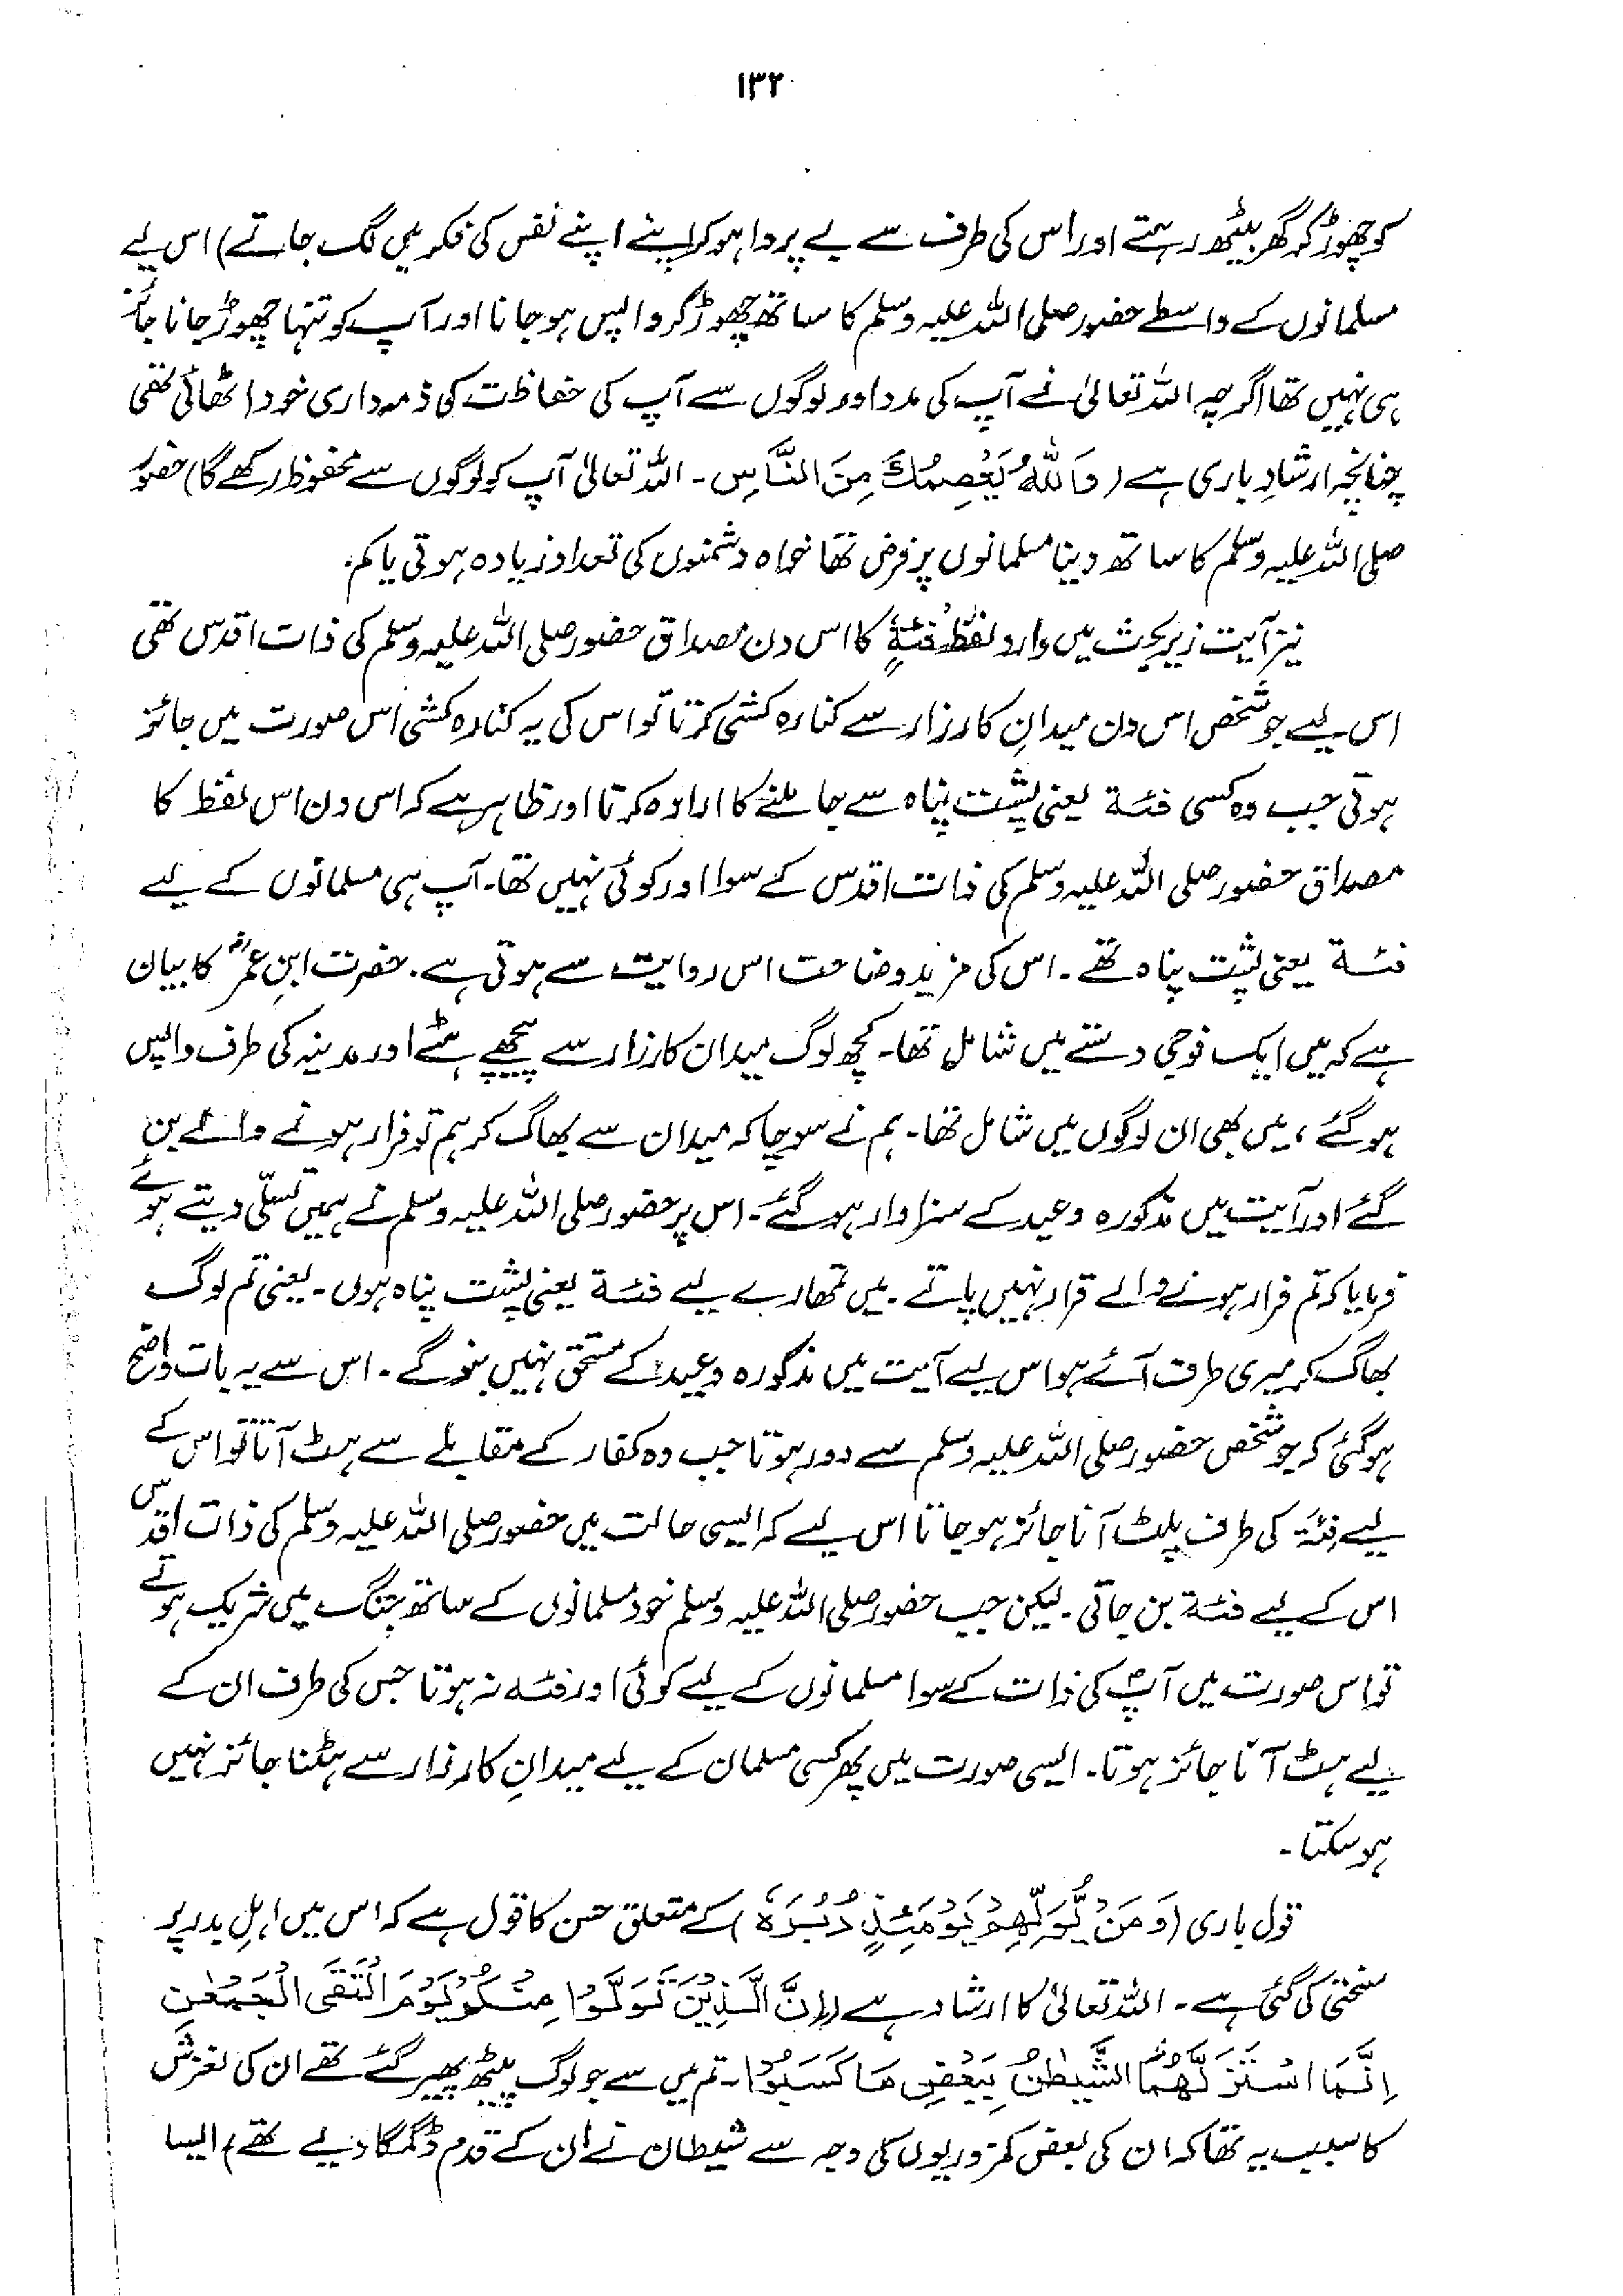 ۱۳۲
کو چھوڑ کر گھر بیٹھ رہتے اور اس کی طرف سے بے پروا ہو کر اپنے اپنے نفس کی فکر میں لگ جاتے) اس لیے
مسلمانوں کے واسطے حضور صلی اللہ علیہ وسلم کا ساتھ چھوڑ کر واپس ہو جانا اور آپ کو تنہا چھوڑ جانا جائز
ہی نہیں تھا اگرچہ اللہ تعالیٰ نے آپ کی مدد اور لوگوں سے آپ کی حفاظت کی ذمہ داری خود اٹھائی تھی
چنانچہ ارشادِ باری ہے (وَاللّٰهُ يَعْصِمُكَ مِنَ النَّاسِ۔ اللہ تعالیٰ آپ کو لوگوں سے محفوظ رکھے گا) حضور
صلی اللہ علیہ وسلم کا ساتھ دینا مسلمانوں پر فرض تھا خواہ دشمنوں کی تعداد زیادہ ہوتی یا کم۔
نیز آیت زیر بحث میں وارد لفظ فِئَةٍ کا اس دن مصداق حضور صلی اللہ علیہ وسلم کی ذات اقدس تھی
اس لیے جو شخص اس دن میدانِ کارزار سے کنارہ کشی کرتا تو اس کی یہ کنارہ کشی اس صورت میں جائز
ہوتی جب وہ کسی فئة یعنی پشت پناہ سے جا ملنے کا ارادہ کرتا اور ظاہر ہے کہ اس دن اس لفظ کا
مصداق حضور صلی اللہ علیہ وسلم کی ذات اقدس کے سوا اور کوئی نہیں تھا۔ آپ ہی مسلمانوں کے لیے
فئة یعنی پشت پناہ تھے۔ اس کی مزید وضاحت اس روایت سے ہوتی ہے۔ حضرت ابنِ عمرؓ کا بیان
ہے کہ میں ایک فوجی دستے میں شامل تھا۔ کچھ لوگ میدان کارزار سے پیچھے ہٹے اور مدینہ کی طرف واپس
ہو گئے، میں بھی ان لوگوں میں شامل تھا۔ ہم نے سوچا کہ میدان سے بھاگ کر ہم تو فرار ہونے والے بن
گئے اور آیت میں مذکورہ وعید کے سزاوار ہو گئے۔ اس پر حضور صلی اللہ علیہ وسلم نے ہمیں تسلّی دیتے ہوئے
فرمایا کہ تم فرار ہونے والے قرار نہیں پاتے۔ میں تمھارے لیے فئة یعنی پشت پناہ ہوں۔ یعنی تم لوگ
بھاگ کر میری طرف آئے ہو اس لیے آیت میں مذکورہ وعید کے مستحق نہیں بنو گے۔ اس سے یہ بات واضح
ہو گئی کہ جو شخص حضور صلی اللہ علیہ وسلم سے دور ہوتا جب وہ کفار کے مقابلے سے ہٹ آتا تو اس کے
لیے فِئَة کی طرف پلٹ آنا جائز ہو جاتا اس لیے کہ ایسی حالت میں حضور صلی اللہ علیہ وسلم کی ذات اقدس
اس کے لیے فئة بن جاتی۔ لیکن جب حضور صلی اللہ علیہ وسلم خود مسلمانوں کے ساتھ جنگ میں شریک ہوتے
تو اس صورت میں آپؐ کی ذات کے سوا مسلمانوں کے لیے کوئی اور فئہ نہ ہوتا جس کی طرف ان کے
لیے ہٹ آنا جائز ہوتا۔ ایسی صورت میں پھر کسی مسلمان کے لیے میدانِ کارزار سے ہٹنا جائز نہیں
ہو سکتا۔
قول باری (وَمَنْ يُّوَلِّهِمْ يَوْمَئِذٍ دُبُرَهٗ) کے متعلق حسن کا قول ہے کہ اس میں اہلِ بدر پر
سختی کی گئی ہے۔ اللہ تعالیٰ کا ارشاد ہے (اِنَّ الَّذِيْنَ تَوَلَّوْا مِنْكُمْ يَوْمَ الْتَقَى الْجَمْعٰنِ
اِنَّمَا اسْتَزَلَّهُمُ الشَّيْطٰنُ بِبَعْضِ مَا كَسَبُوْا۔ تم میں سے جو لوگ پیٹھ پھیر گئے تھے ان کی لغزش
کا سبب یہ تھا کہ ان کی بعض کمزوریوں کی وجہ سے شیطان نے ان کے قدم ڈگمگا دیے تھے) ایسا